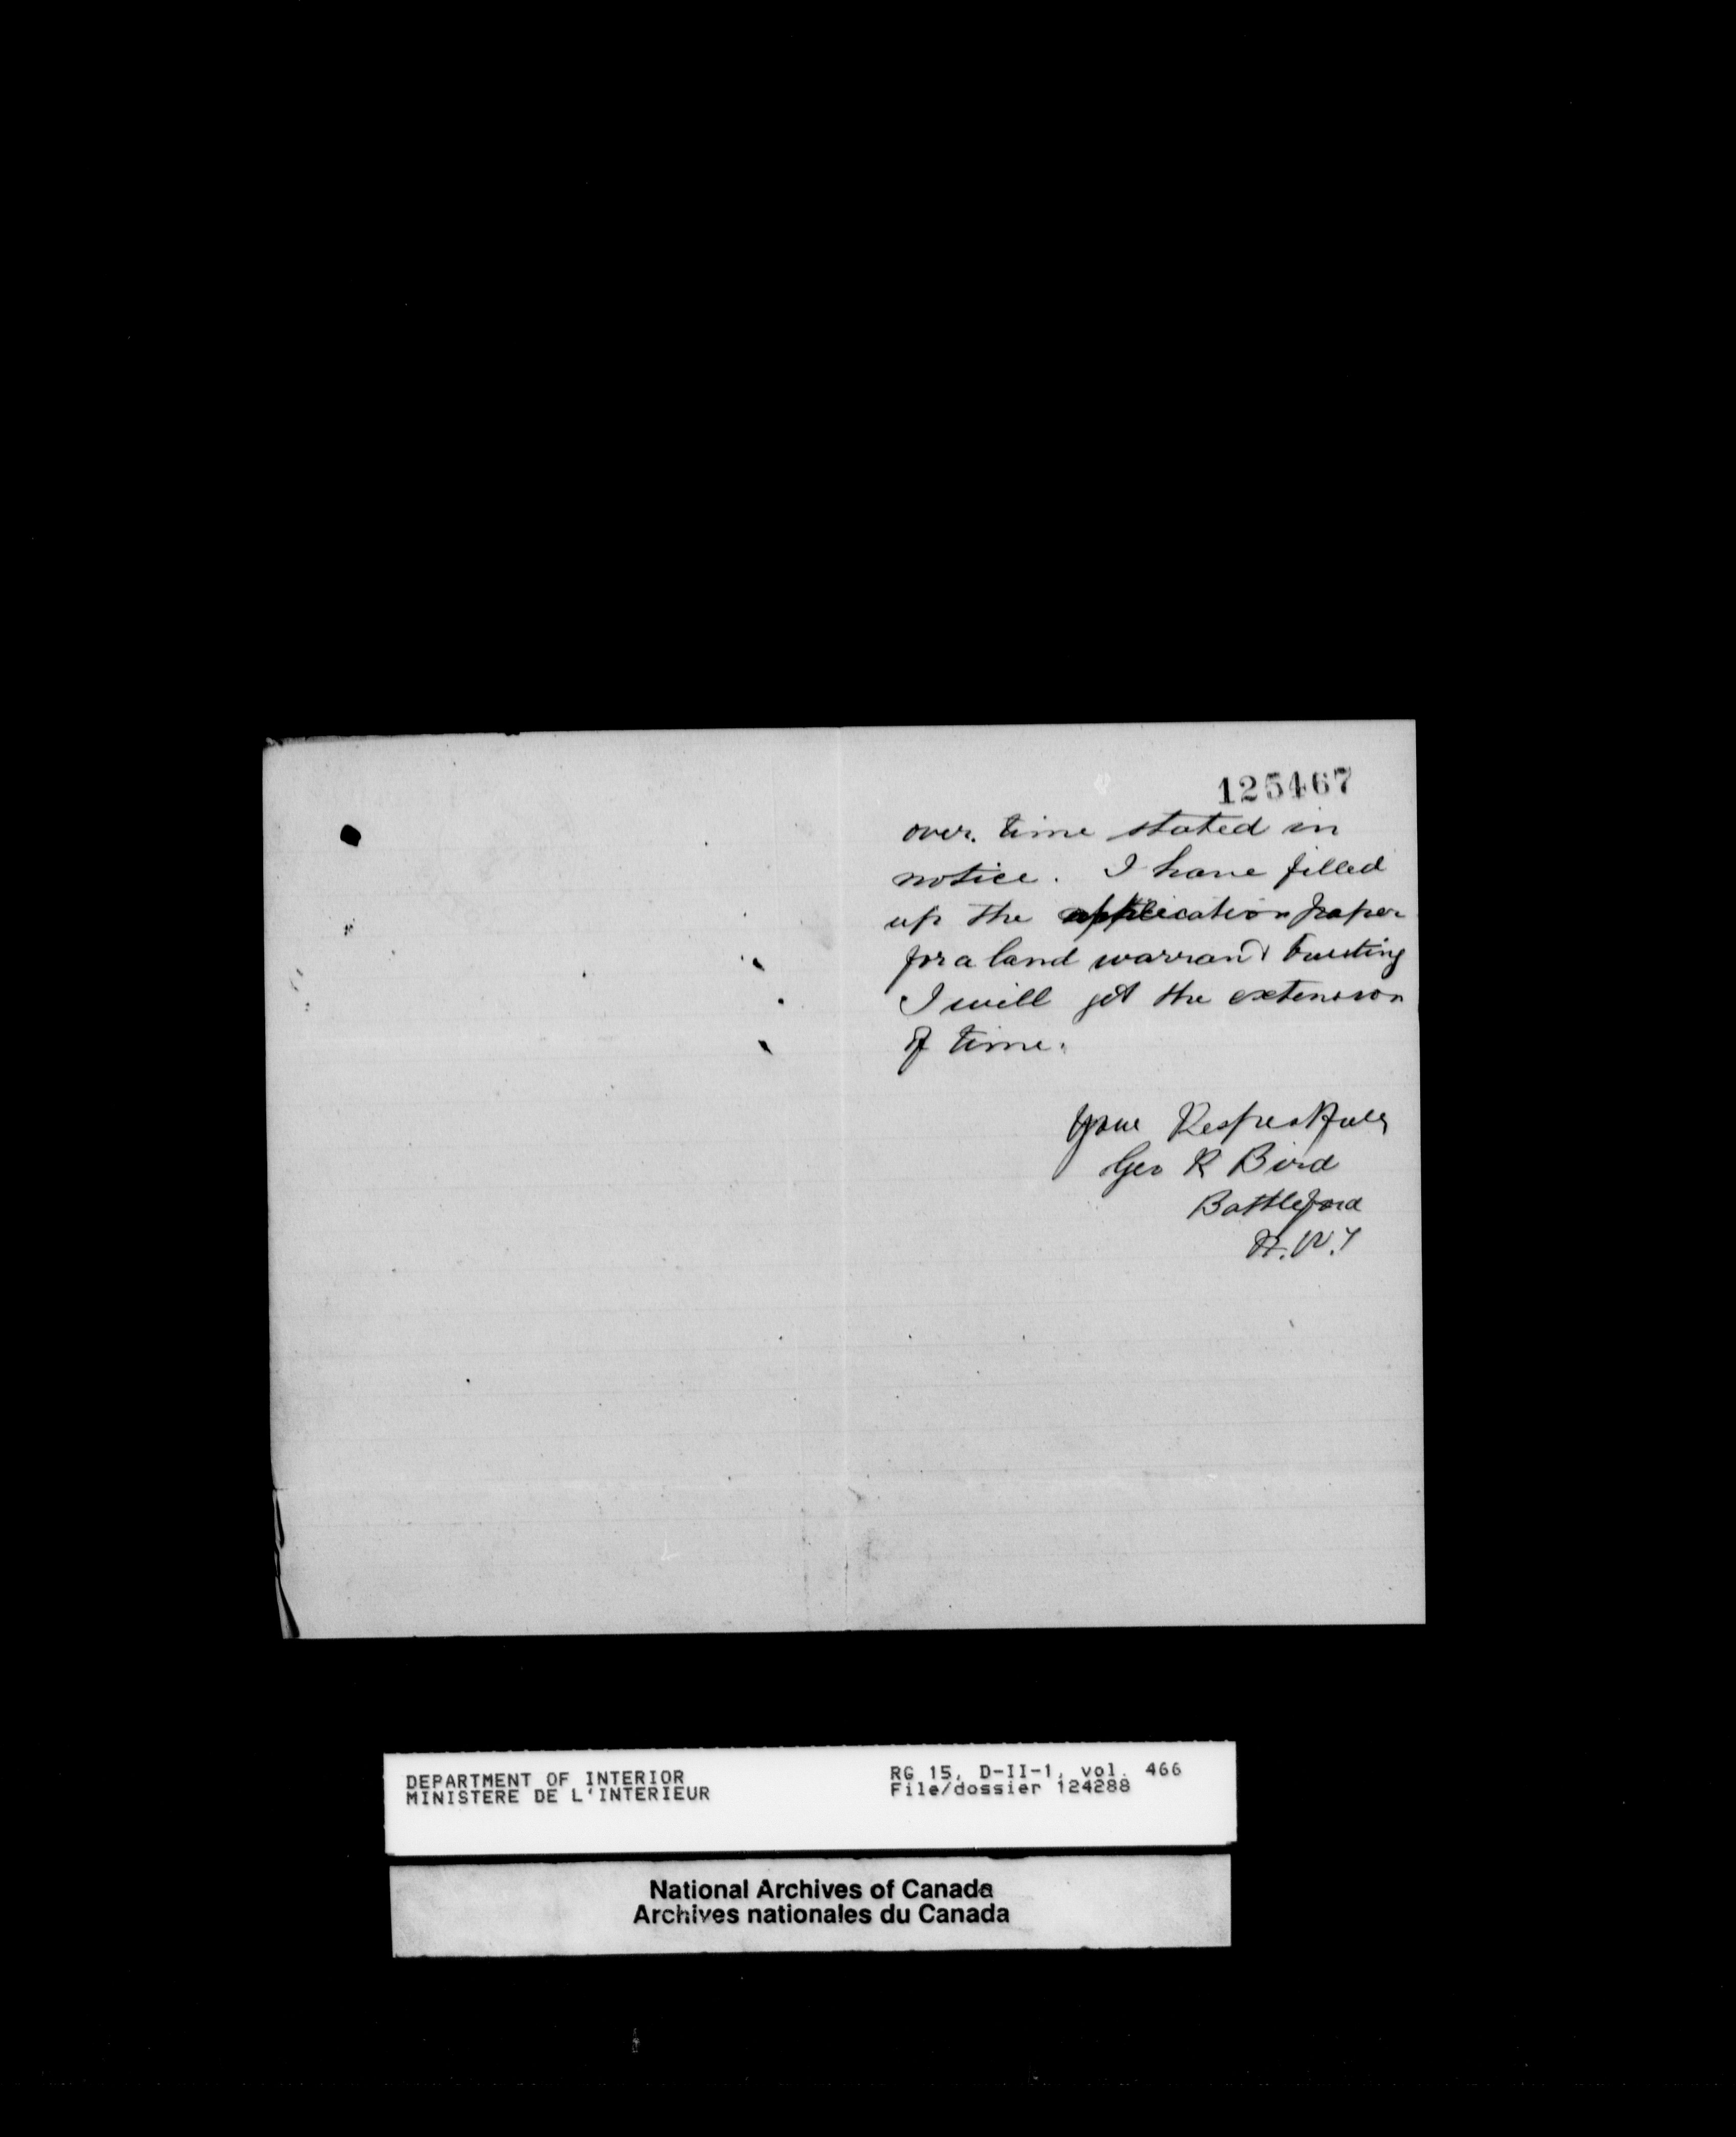 125467
over. time stated in
notice. I have filled
up the application paper
for a land warrant trusting
I will get the extension
of time.
Your Respectfully
Geo R Bird
Battleford
N.W.T
DEPARTMENT OF INTERIOR
MINISTERE DE L'INTERIEUR
RG 15, D-II-1, vol. 466
File/dossier 124288
National Archives of Canada
Archives nationales du Canada